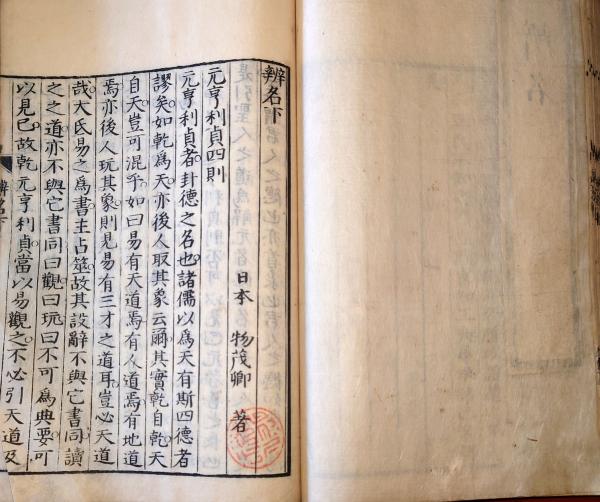 辨名下
日本 物茂卿 著
元亨利貞四則
元亨利貞者。卦德之名也。諸儒以爲天有斯四德者
謬矣。如乾爲天。亦後人取其象云爾。其實乾自乾。天
自天。豈可混乎。如曰易有天道焉。有人道焉。有地道
焉。亦後人玩其象。則見易有三才之道耳。豈必天道
哉。大氐易之爲書。主占筮。故其設辭不與它書同。讀
之之道。亦不與它書同。曰觀。曰玩。曰不可爲典要。可
以見已。故乾元亨利貞。當以易觀之。不必引天道及
辨名下